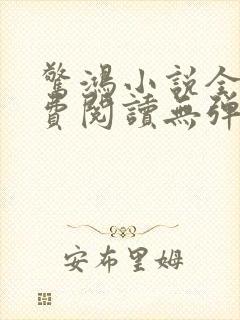 驚鴻小說全
費閱讀無彈
安布里姆